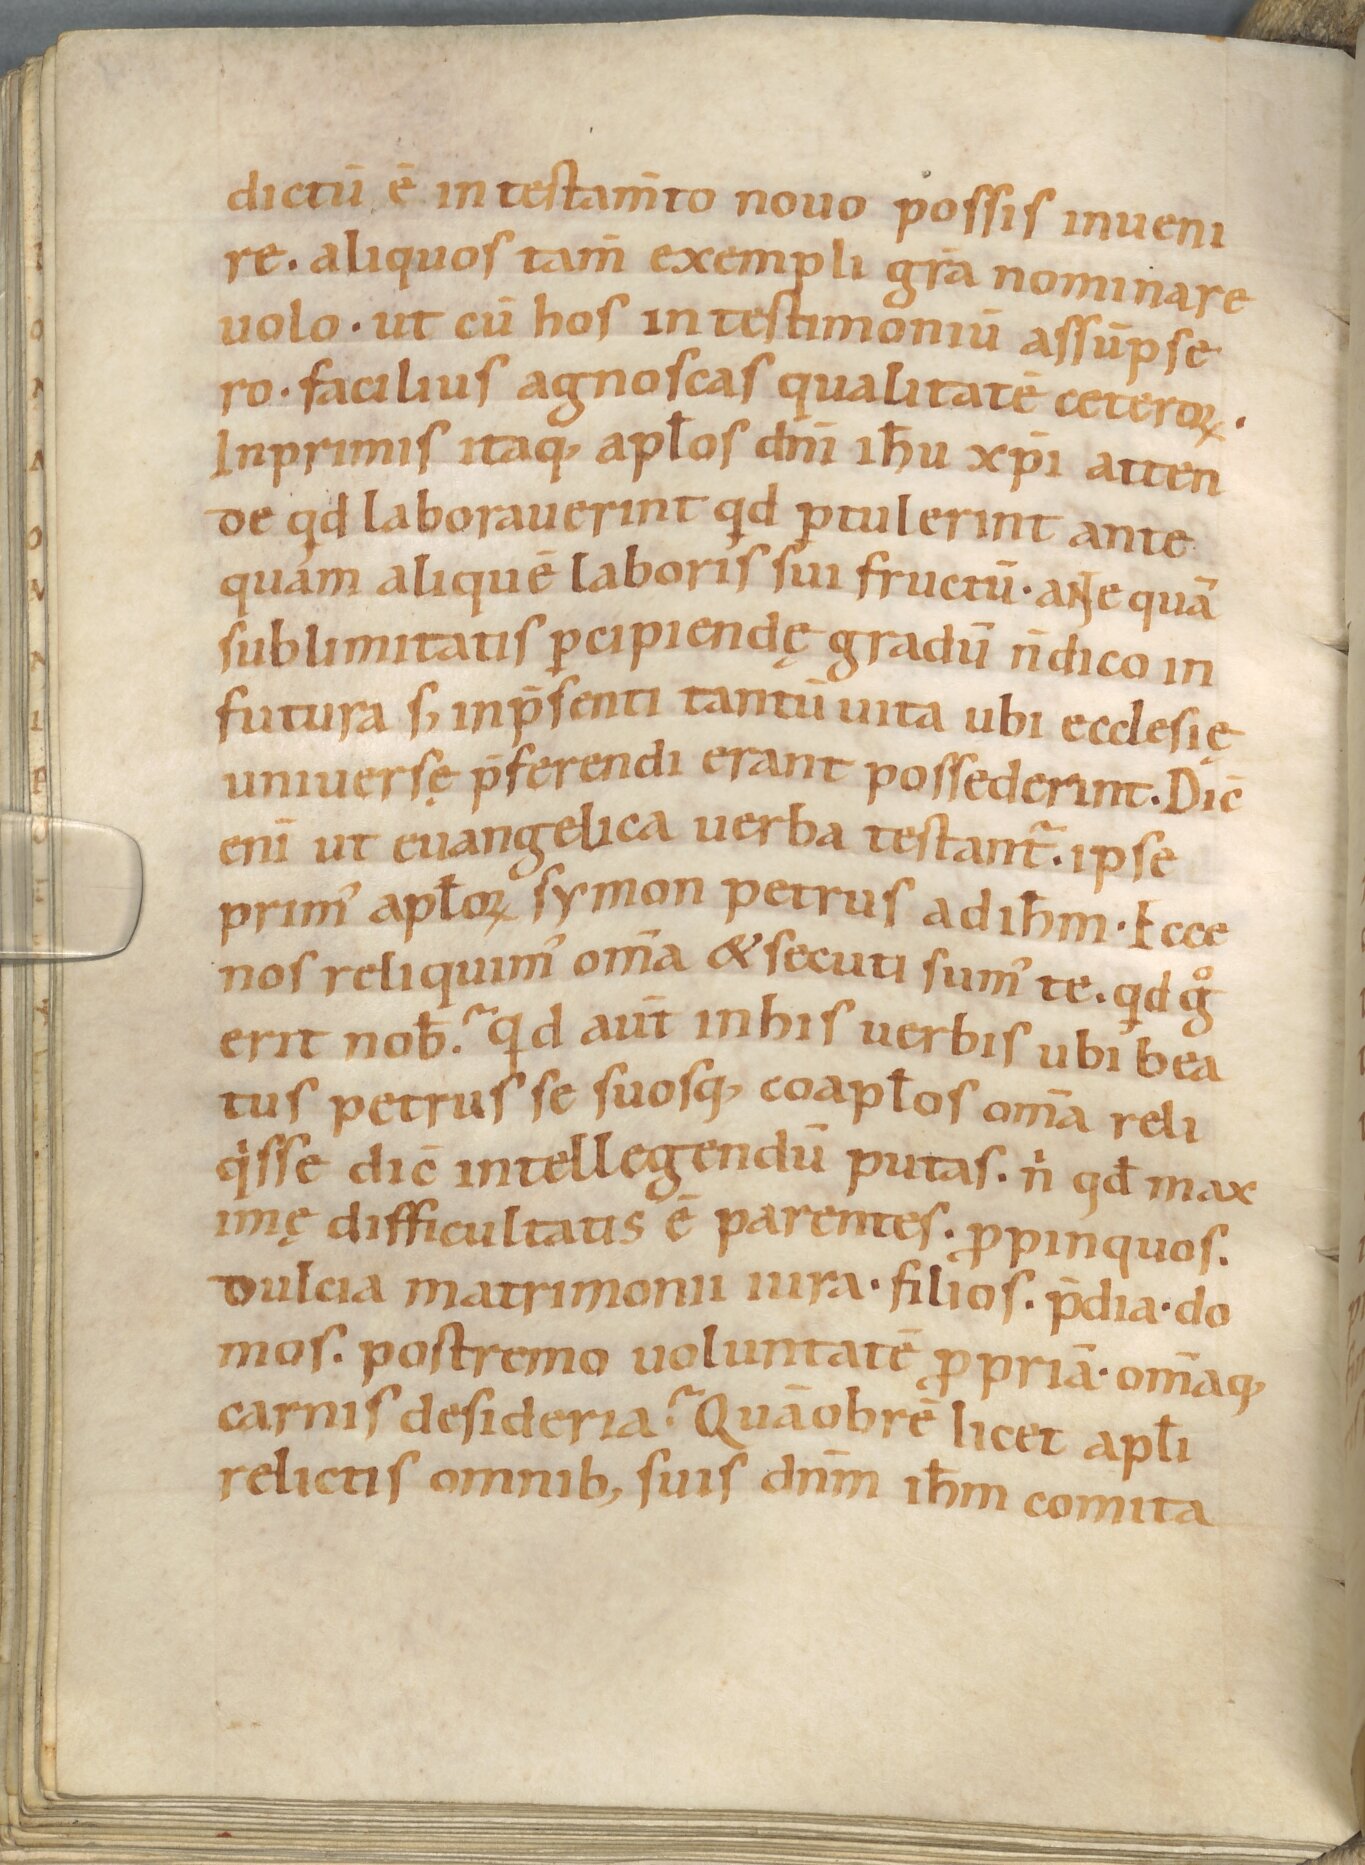 dictū ē in testam̄to nouo possis inueni
re. aliquos tam̄ exempli gr̄a nominare
uolo · ut cū hos in testimoniū assūpse
ro · facilius agnoscas qualitatē ceteroꝝ ·
Inprimis itaq, apl̄os dn̄i ih̄u xp̄i atten
de qd laborauerint qd ꝑtulerint ante
quam aliquē laboris sui fructū · ante quā
sublimitatis ꝑcipiendę gradū n̄ dico in
futura s, in p̄senti tantū uita ubi ecclesię
uniuersę p̄ferendi erant possederint. Dic̄
eni̅ ut euangelica uerba testant᷑. ipse
prim᾽ apl̄oꝝ symon petrus ad ih̄m · Ecce
nos reliquim᾽ om̄a & secuti sum᾽ te. qd gͦ
erit nob̄.᷑ qd aut̄ in his uerbis ubi bea
tus petrus se suosq, coapl̄os om̄a reli
qͥsse dic̄ intellegendū putas. nͥ qd̄ max
imę difficultatis ē parentes. ꝓpinquos.
dulcia matrimonii iura · filios. p̄dia · do
mos. postremo uoluntatē ꝓpriā · om̄aq,
carnis desideria.᷑ Quāobrē licet apl̄i
relictis omnib, suis dn̄m ih̄m comita